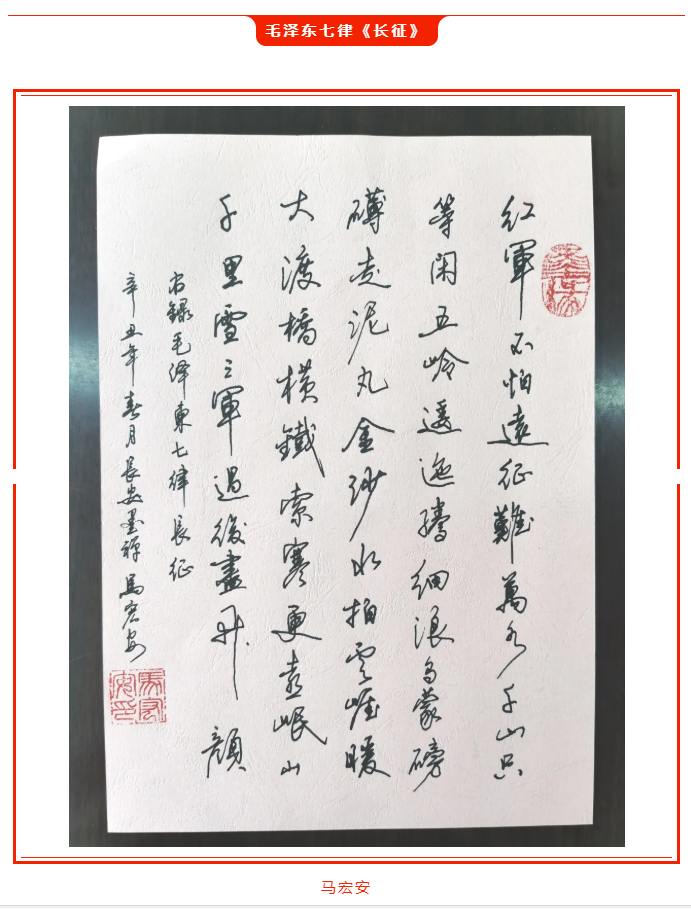 毛泽东七律《长征》
紅軍不怕遠征難萬水千山只
等闲五岭逶迤騰細浪烏蒙磅
礴走泥丸金沙水拍雲崖暖
大渡橋横鐵索寒更喜岷山
千里雪三軍過後盡開顔
右録毛泽東七律長征
辛丑年春月長安墨禪馬宏安
馬宏安印
马宏安